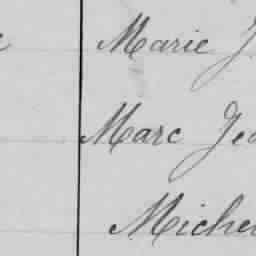 Marie J
Marc Jea
Michel